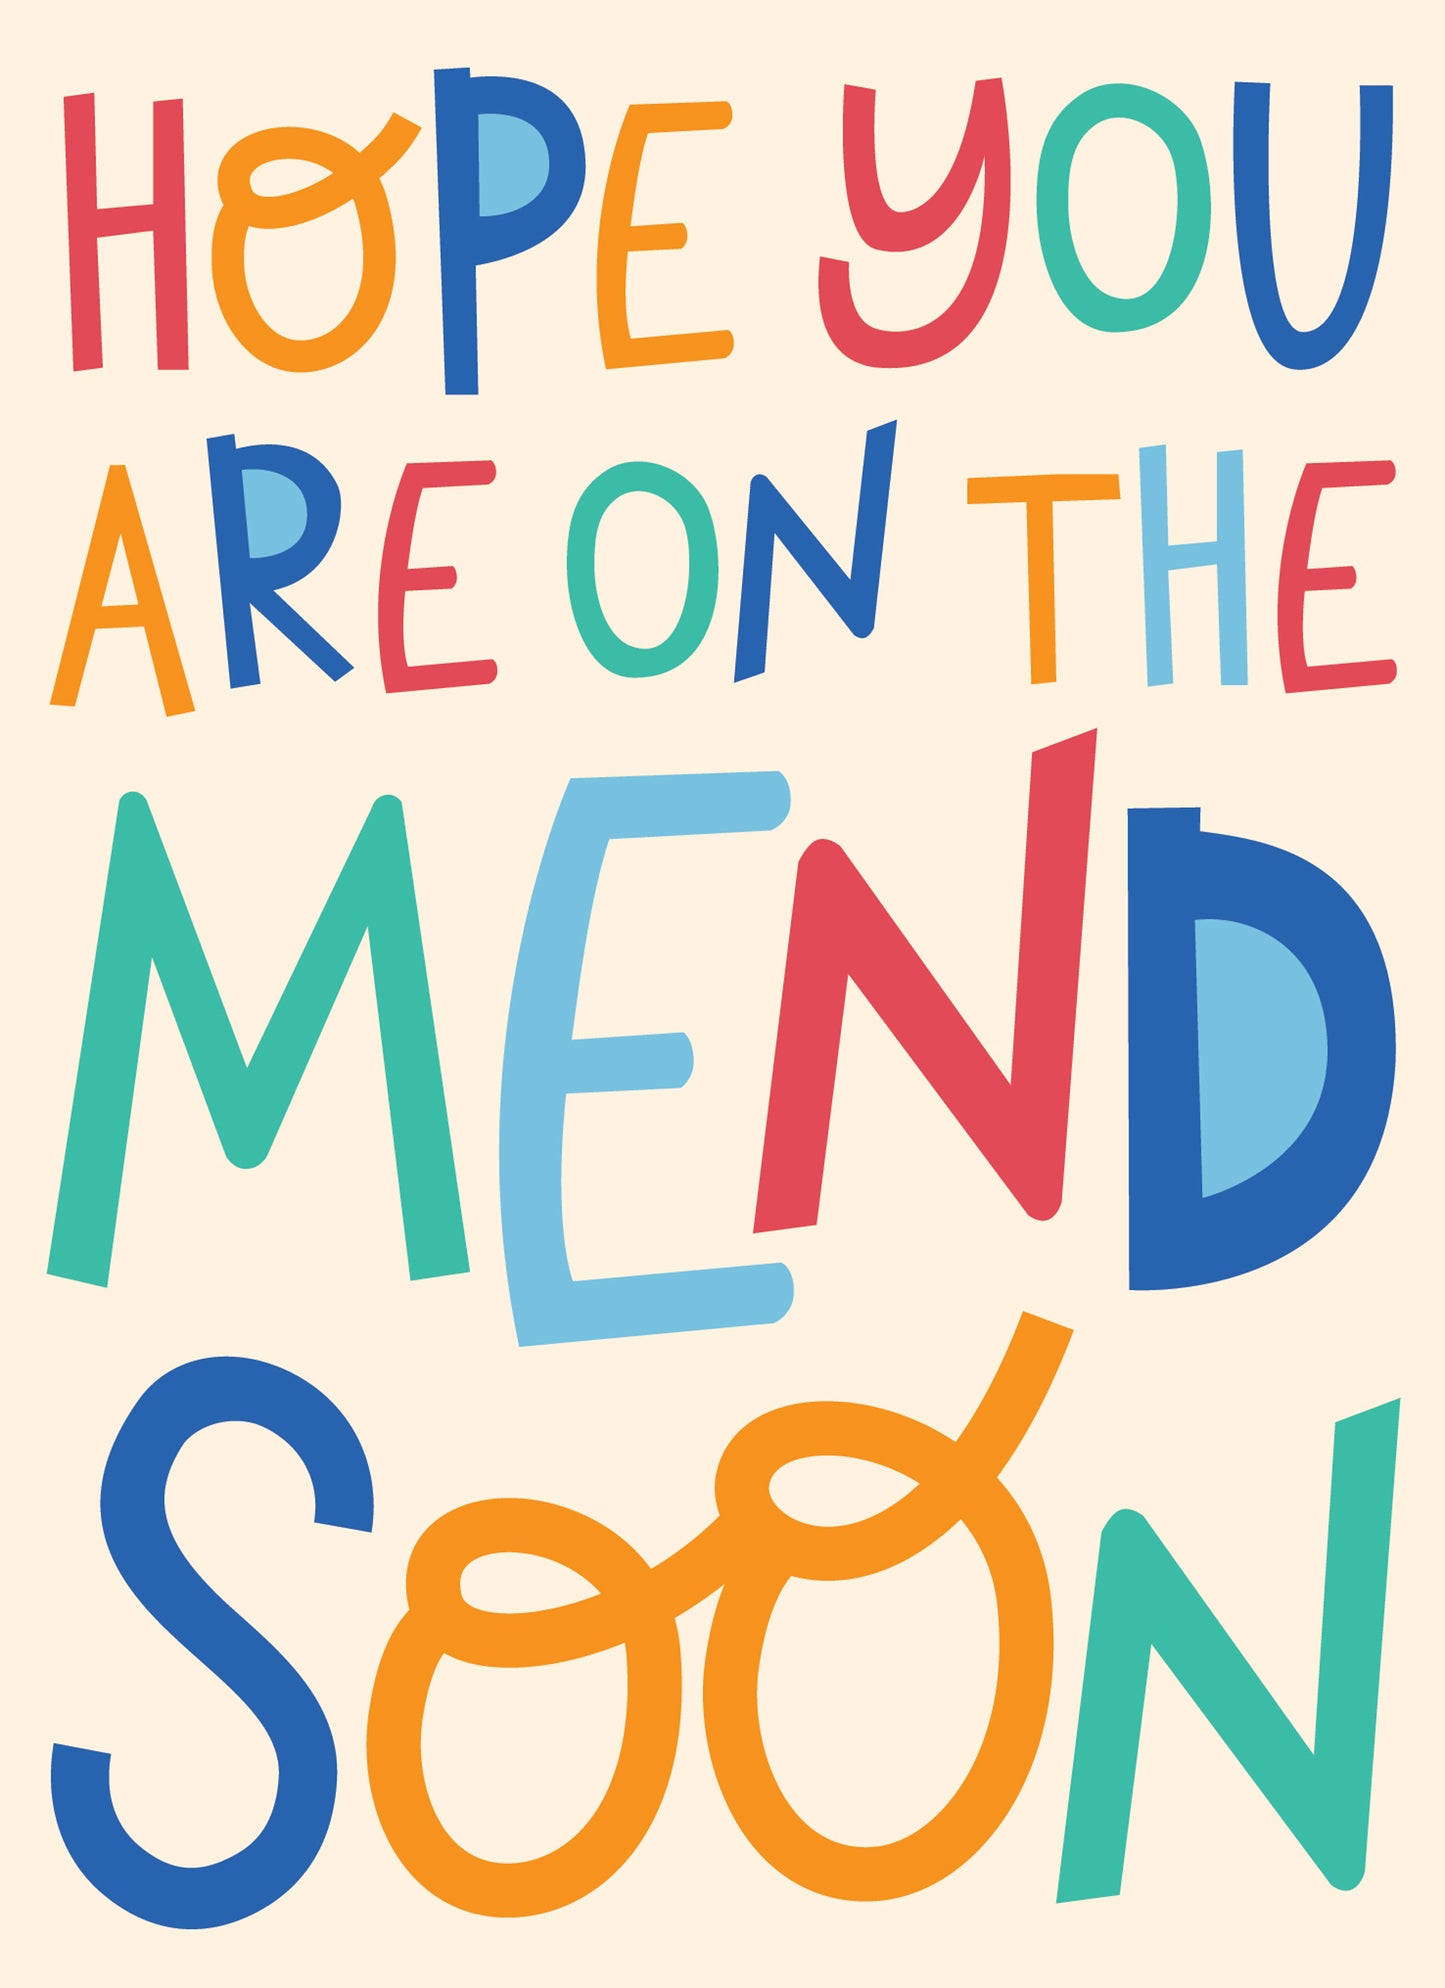 HOPE YOU
ARE ON THE
MEND
SOON